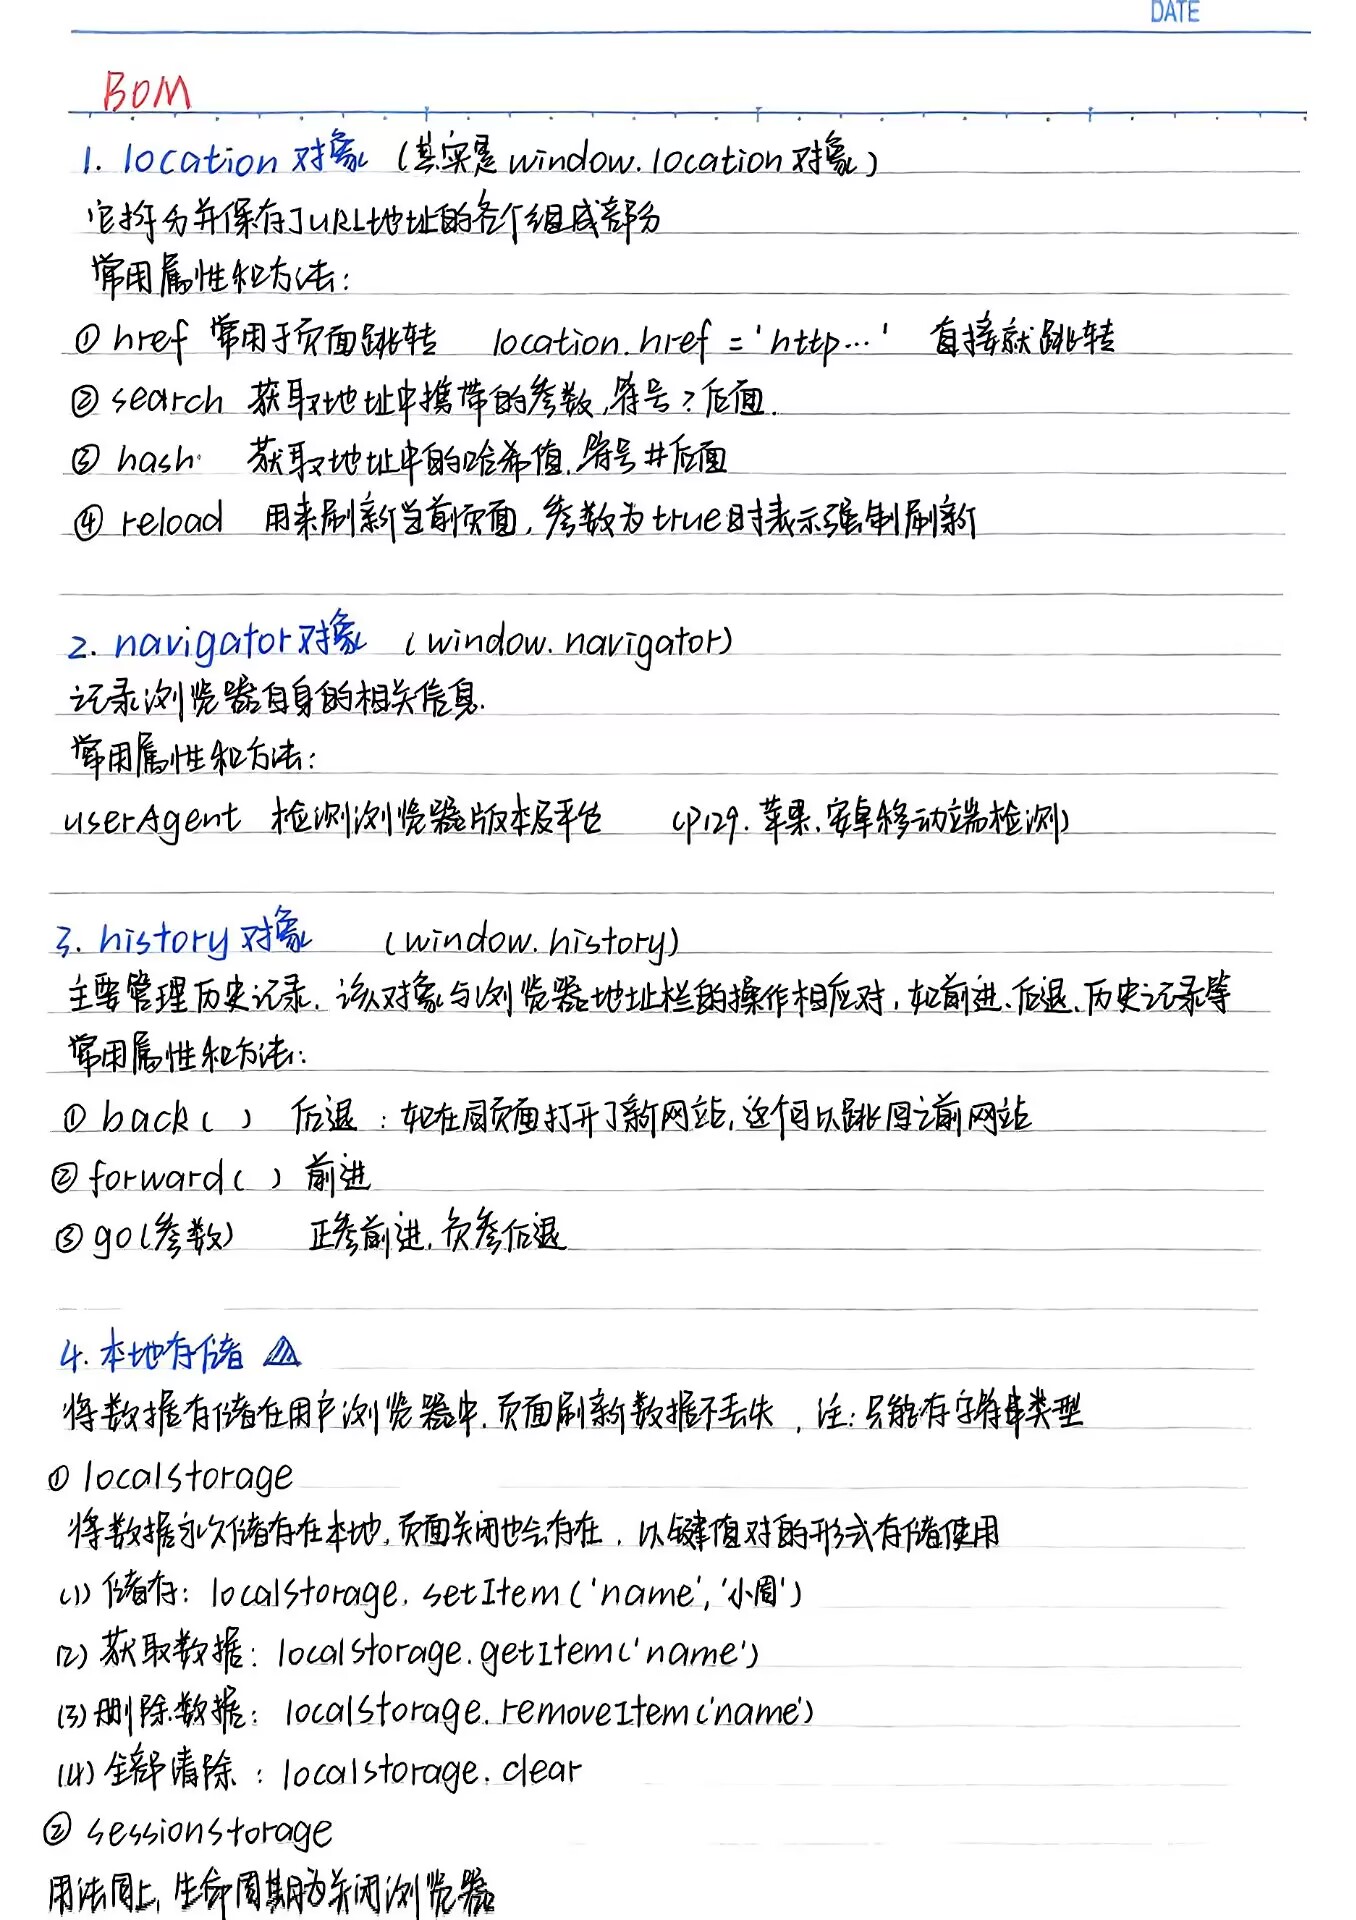 DATE
BOM
1. location 对象 (其实是window.location对象)
它拆分并保存了URL地址的各个组成部分
常用属性和方法:
① href 常用于页面跳转 location.href = 'http...' 直接就跳转
② search 获取地址中携带的参数,符号?后面.
③ hash 获取地址中的哈希值,符号#后面
④ reload 用来刷新当前页面,参数为true时表示强制刷新
2. navigator对象 (window.navigator)
记录浏览器自身的相关信息.
常用属性和方法:
userAgent 检测浏览器版本及平台 (P129.苹果.安卓移动端检测)
3. history对象 (window.history)
主要管理历史记录.该对象与浏览器地址栏的操作相应对,如前进、后退、历史记录等
常用属性和方法:
① back( ) 后退:如在同页面打开了新网站,这个可以跳回之前网站
② forward( ) 前进
③ go(参数) 正参前进,负参后退
4. 本地存储
将数据存储在用户浏览器中.页面刷新数据不丢失,注:只能存字符串类型
① localstorage
将数据永久储存在本地,页面关闭也会存在,以键值对的形式存储使用
(1) 储存: localstorage.setItem('name','小周')
(2) 获取数据: localstorage.getItem('name')
(3) 删除数据: localstorage.removeItem('name')
(4) 全部清除: localstorage.clear
② sessionstorage
用法同上,生命周期为关闭浏览器